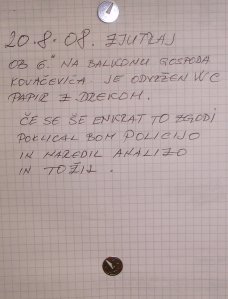 20.8.08. ZJUTRAJ
OB 6." NA BALKONU GOSPODA
KOVAČEVIĆA JE ODVRŽEN WC
PAPIR Z DREKOM.
ČE SE ŠE ENKRAT TO ZGODI
POKLICAL BOM POLICIJO
IN NAREDIL ANALIZO
IN TOŽIL.